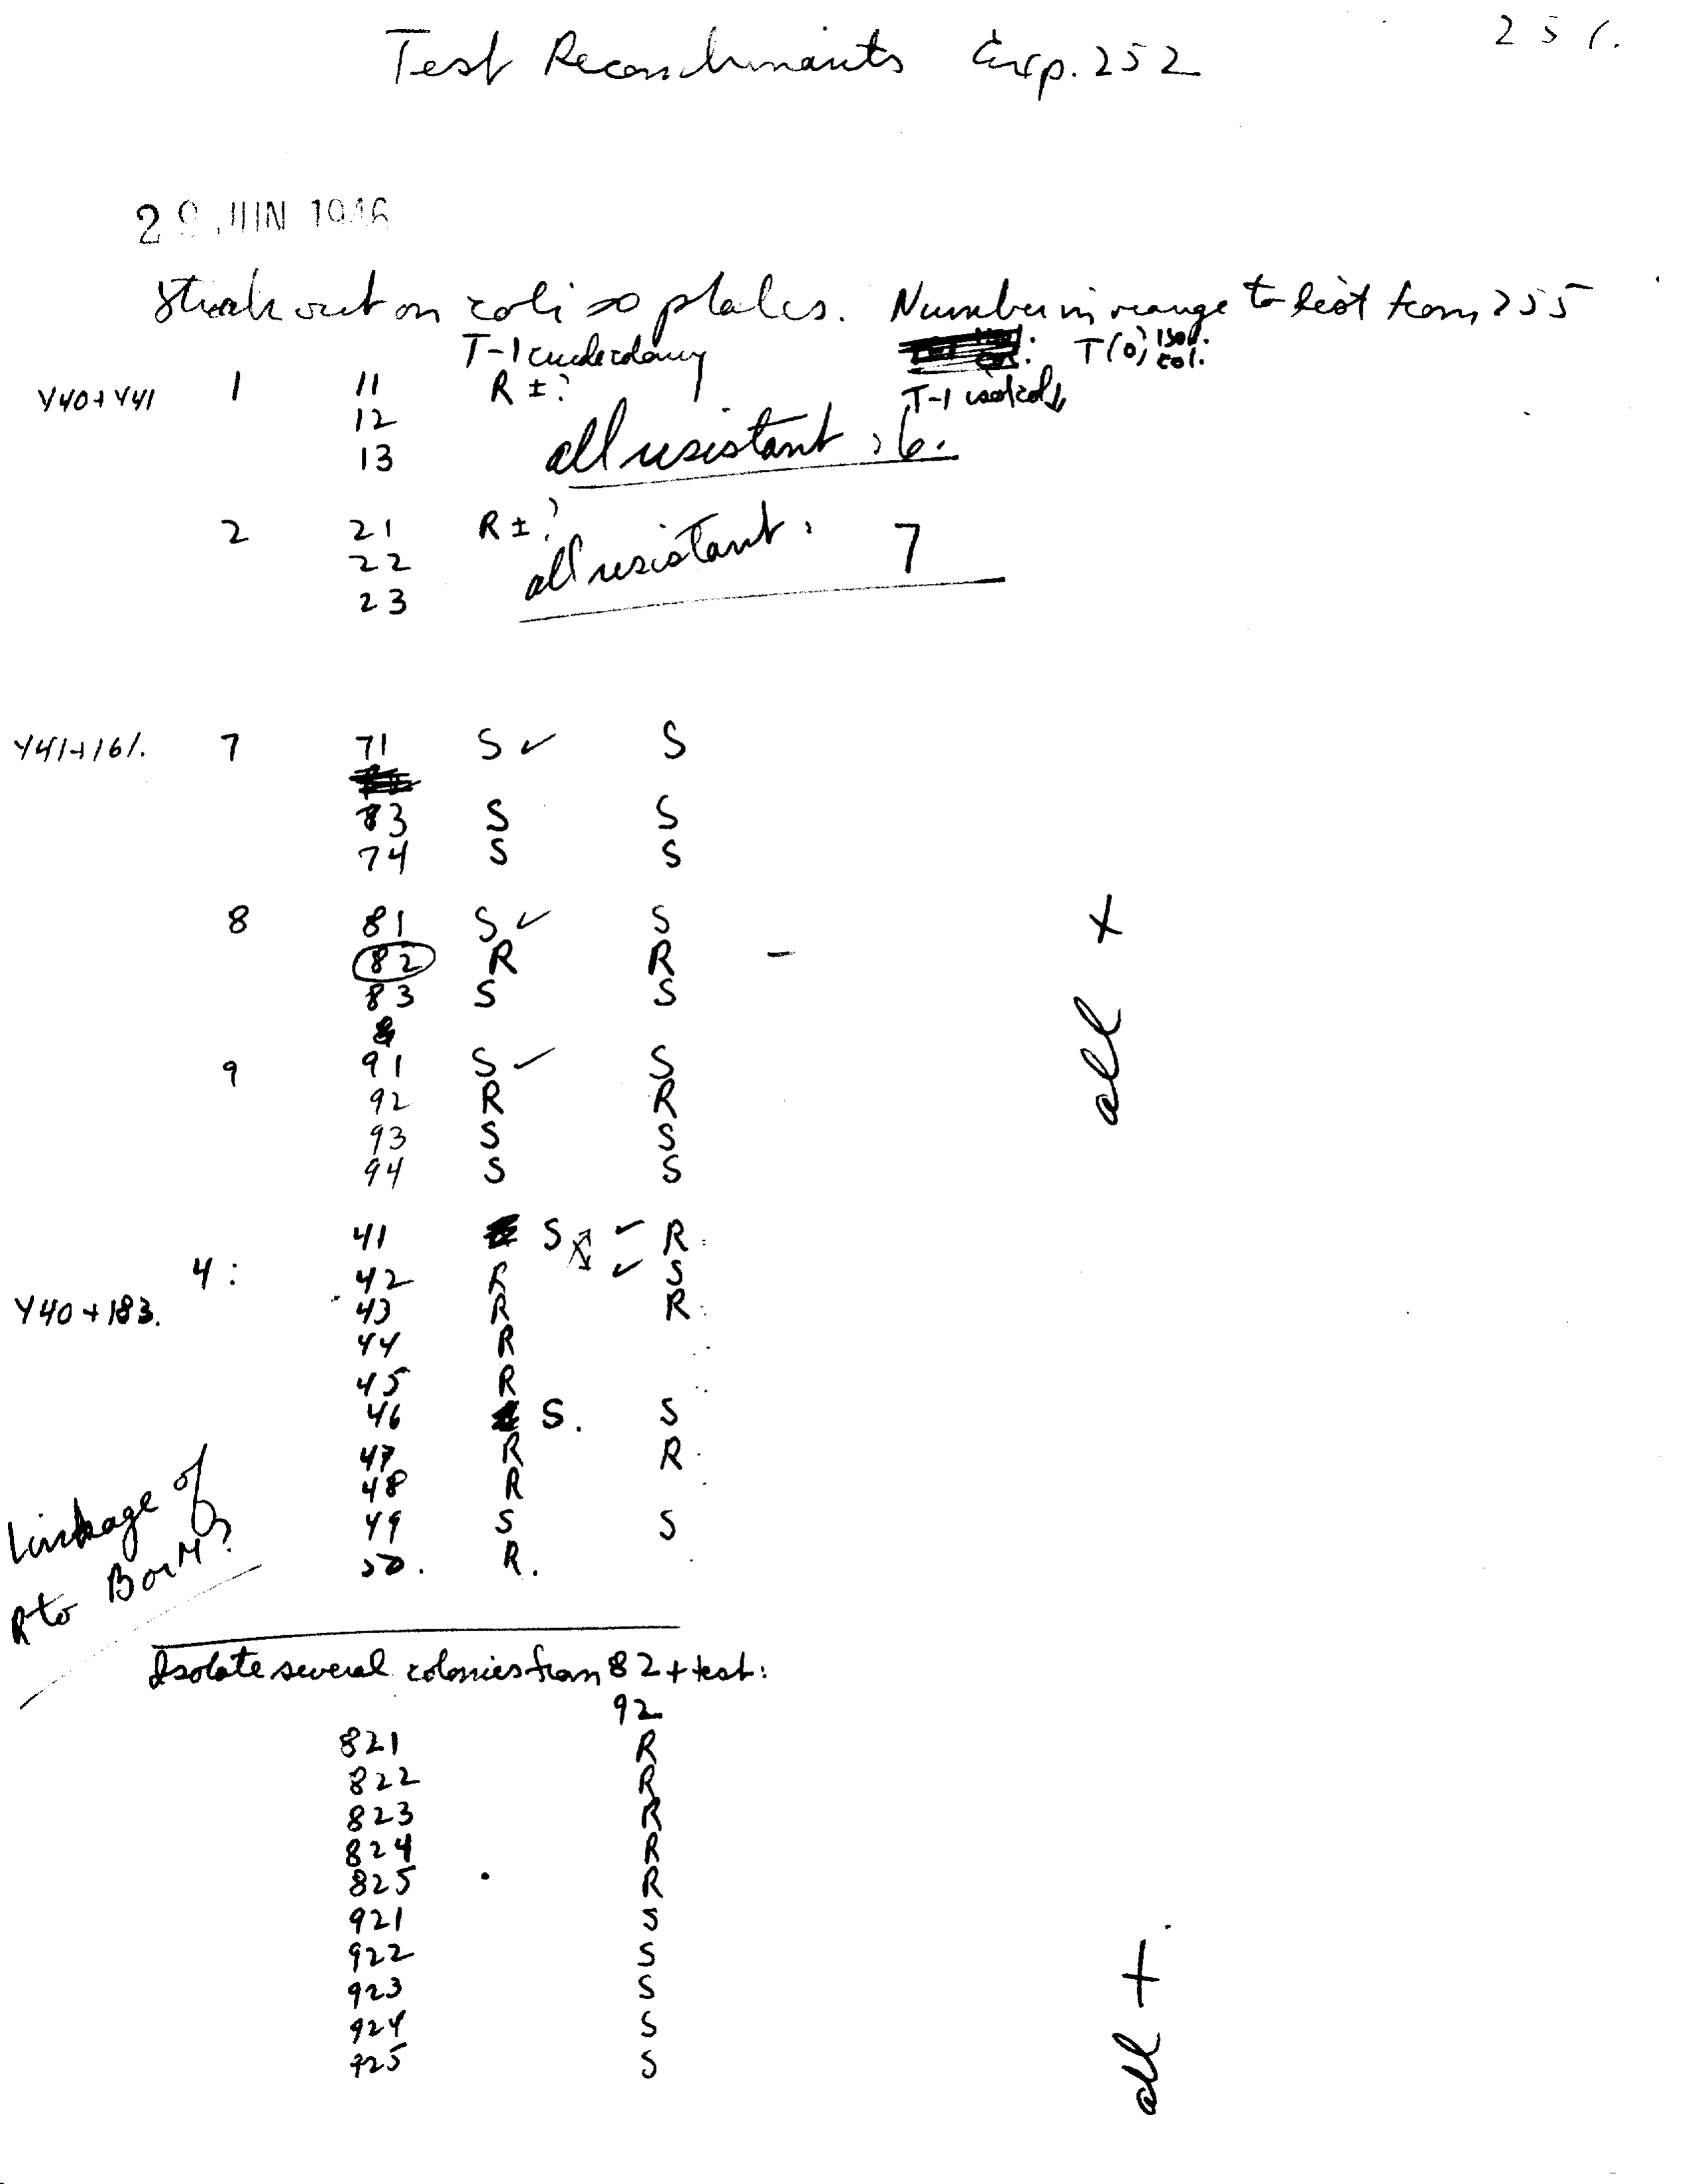 256.
Test Recombinants Exp. 252
29 JUN 1946
Streak out on coli plates. Number in range to test from 255
T-1 crude colony T(0) isol. col.
Y40+Y41 1 11 R ±? T-1 isol col ↓
12
13 all resistant, 6.
2 21 R ±?
22 all resistant, 7
23
Y41+161. 7 71 S ✓ S
83 S S
74 S S
8 81 S ✓ S
82 R R –
83 S S
9 91 S ✓ S
92 R R
93 S S
94 S S
all +
41 S ✓ R
4: 42 R ✓ S
Y40+183. 43 R R
44 R
45 R
46 S. S
47 R R
48 R
49 S S
50. R.
Linkage of
R to B or M?
Isolate several colonies from 82 + test:
92
821 R
822 R
823 R
824 R
825 R
921 S
922 S
923 S
924 S
925 S
all +